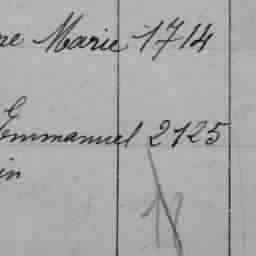 ne Marie 1714
Emmanuel 2125
in